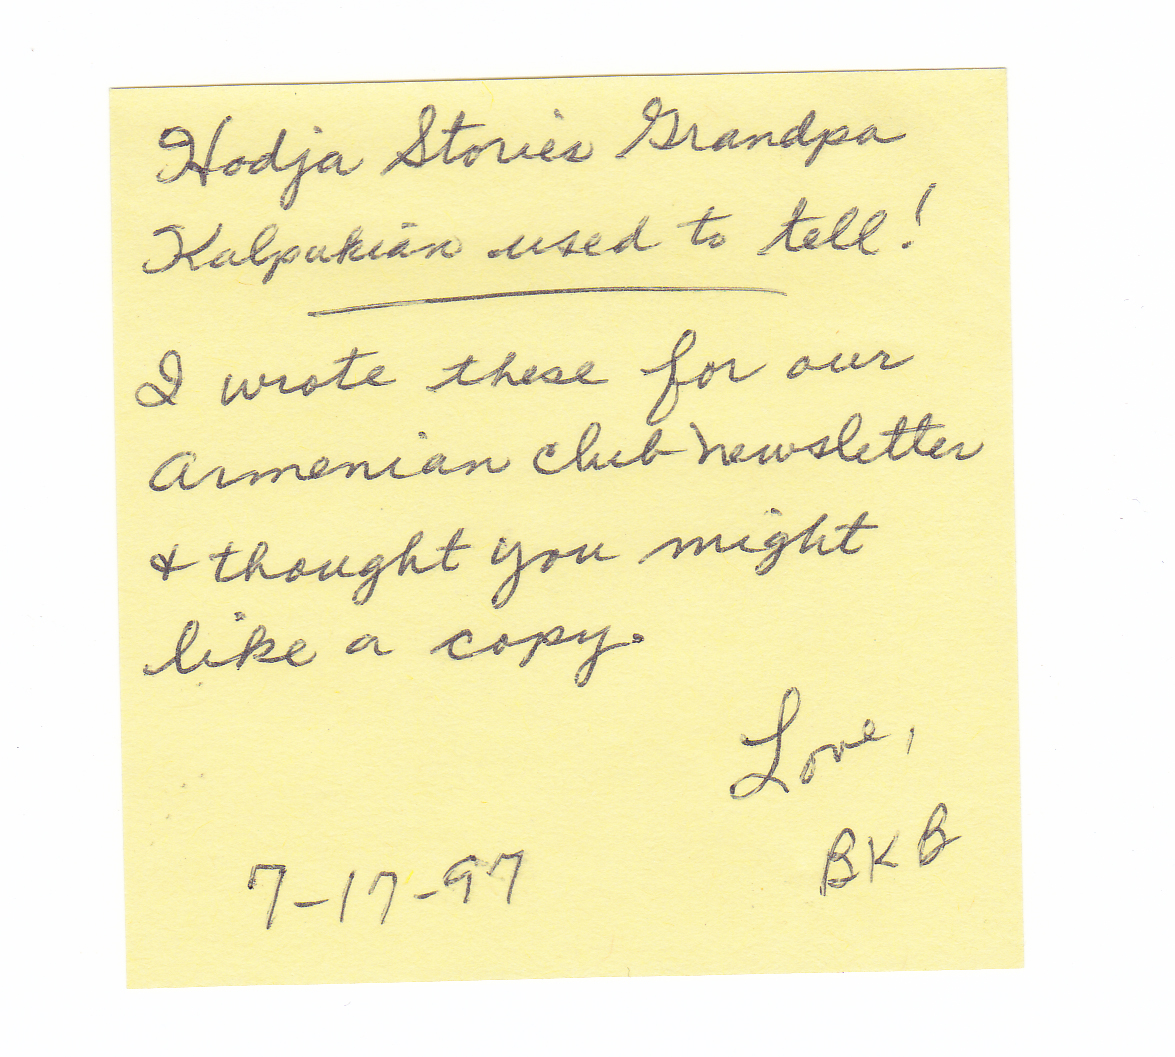 Hodja Stories Grandpa
Kalpakian used to tell!
I wrote these for our
Armenian club newsletter
& thought you might
like a copy.
Love,
BKB
7-17-97